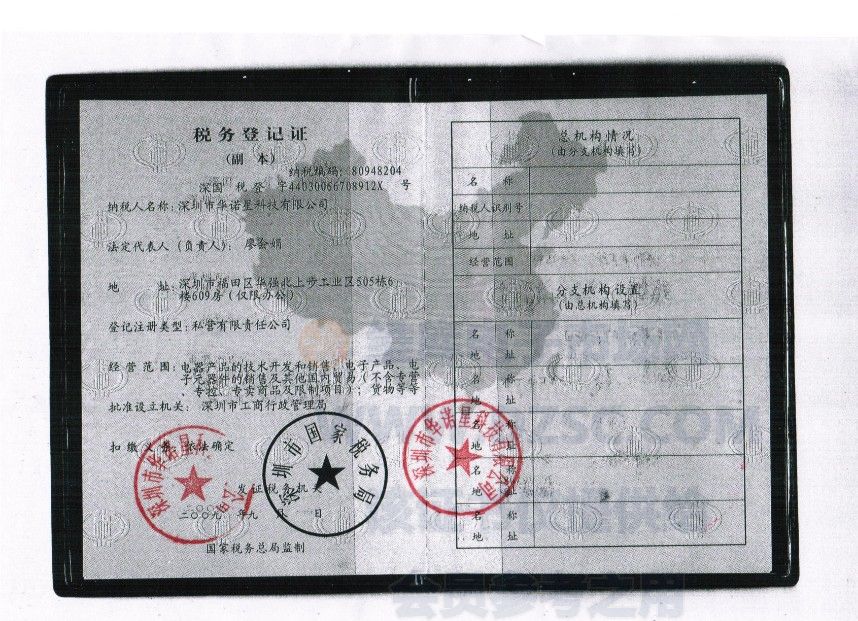 税务登记证
(副 本)
纳税编码: 80948204
深国 税 登 字44030066708912X 号
纳税人名称: 深圳市华诺星科技有限公司
法定代表人(负责人): 廖金娟
地 址: 深圳市福田区华强北上步工业区505栋6
楼609房(仅限办公)
登记注册类型: 私营有限责任公司
经营范围: 电器产品的技术开发和销售、电子产品、电
子元器件的销售及其他国内贸易(不含专营
、专控、专卖商品及限制项目); 货物等等
批准设立机关: 深圳市工商行政管理局
扣缴义务: 依法确定
发证税务机关
二〇〇九 年九 日
国家税务总局监制
深圳市华诺星
深圳市国家税务局
深圳市华诺星科技有限公司
总机构情况
(由分支机构填写)
名 称
纳税人识别号
地 址
经营范围
分支机构设置
(由总机构填写)
名 称
地 址
名 称
地 址
名 称
地 址
名 称
地 址
名 称
地 址
会员参考之用